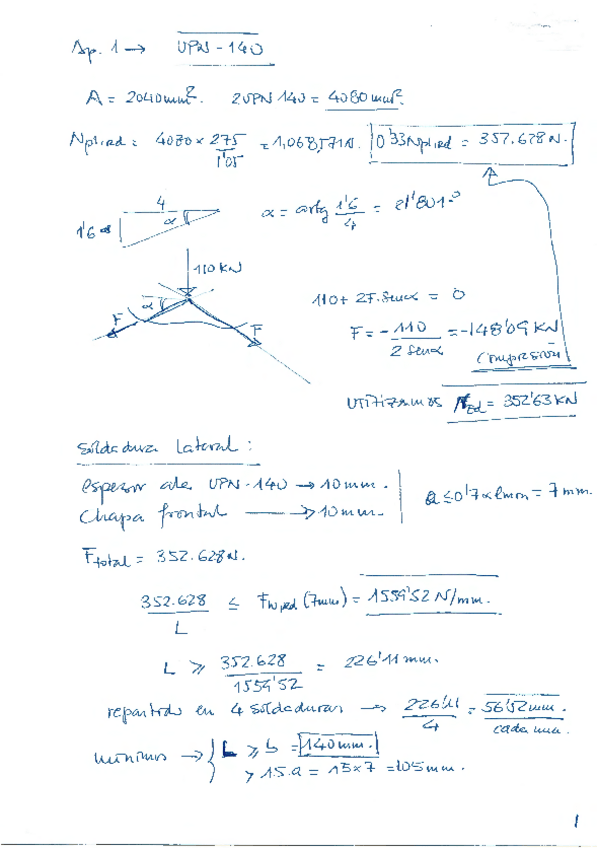 Ap. 1 → UPN-140
A = 2040mm². 2UPN 140 = 4080mm².
Npl,rd = 4080 × 275/1'05 = 1,068,571N. 0'33Npl,rd = 352.628N.
4
α
1'6
α = artg 1'6/4 = 21'801º
110 KN
α
F
F
110 + 2F.senα = 0
F = -110/2 senα = -148'09 KN
(compresión)
UTilizamos NEd = 352'63 KN
Soldadura lateral:
espesor ala UPN-140 → 10mm.
Chapa frontal → 10mm.
a ≤ 0'7 × emin = 7mm.
Ftotal = 352.628N.
352.628/L ≤ Fw,rd (7mm) = 1559'52 N/mm.
L ≥ 352.628/1559'52 = 226'11mm.
repartido en 4 soldaduras → 226'11/4 = 56'52mm. cada una.
mínimos → { L ≥ b = 140mm.
> 15.a = 15×7 = 105mm.
1